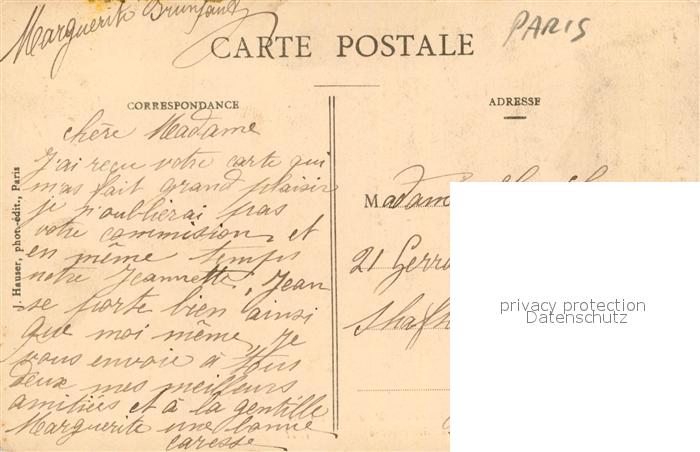 Marguerite
CARTE POSTALE
PARIS
CORRESPONDANCE
ADRESSE
chère Madame
J'ai reçu votre carte qui
m'as fait grand plaisir
je n'oublierai pas
votre commision, et
en même temps
notre Jeannette, Jean
se porte bien ainsi
que moi même, Je
vous envoie à tous
deux mes meilleurs
amitiées et à la gentille
Marguerite une bonne
caresse
J. Hauser, phot.-édit., Paris
Madam
21 Gerr
privacy protection
Datenschutz